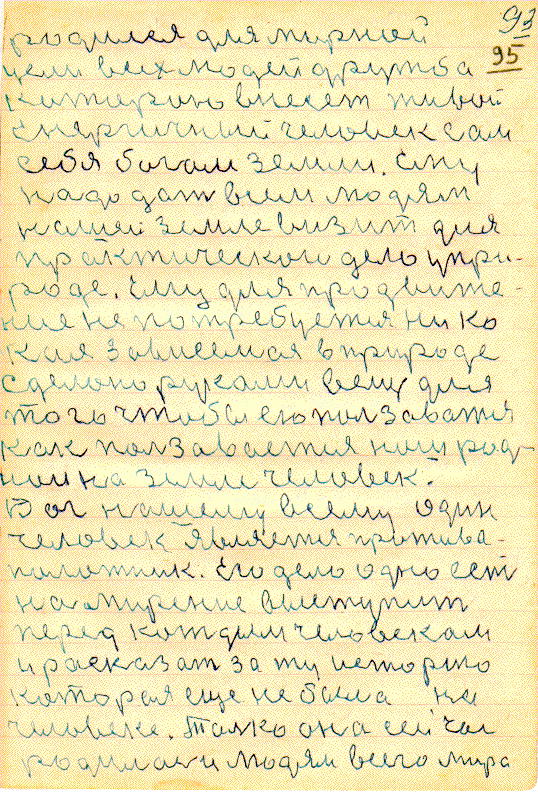 93
95
родился для мирной
цели всех людей дружба
которою внесет живой
енергичный человек сам
себя богам земли. ему
надо дат всем людям
нашей земле визит для
практическои дело у при-
роде. Ему для продвиже-
ние не потребуется ни ко
кая зависемая в природе
сделоно руками вещ для
того чтобы ею ползаватя
как ползавается наш род-
нои на земли человек.
Вот нашему всему один
человек является протива-
положник. Его дело одно ест
на мирение выступит
перед каждым человекам
и расказат за ту историю
которая еще не была на
человеке. Толко она сейчас
родилас и людям всего мира